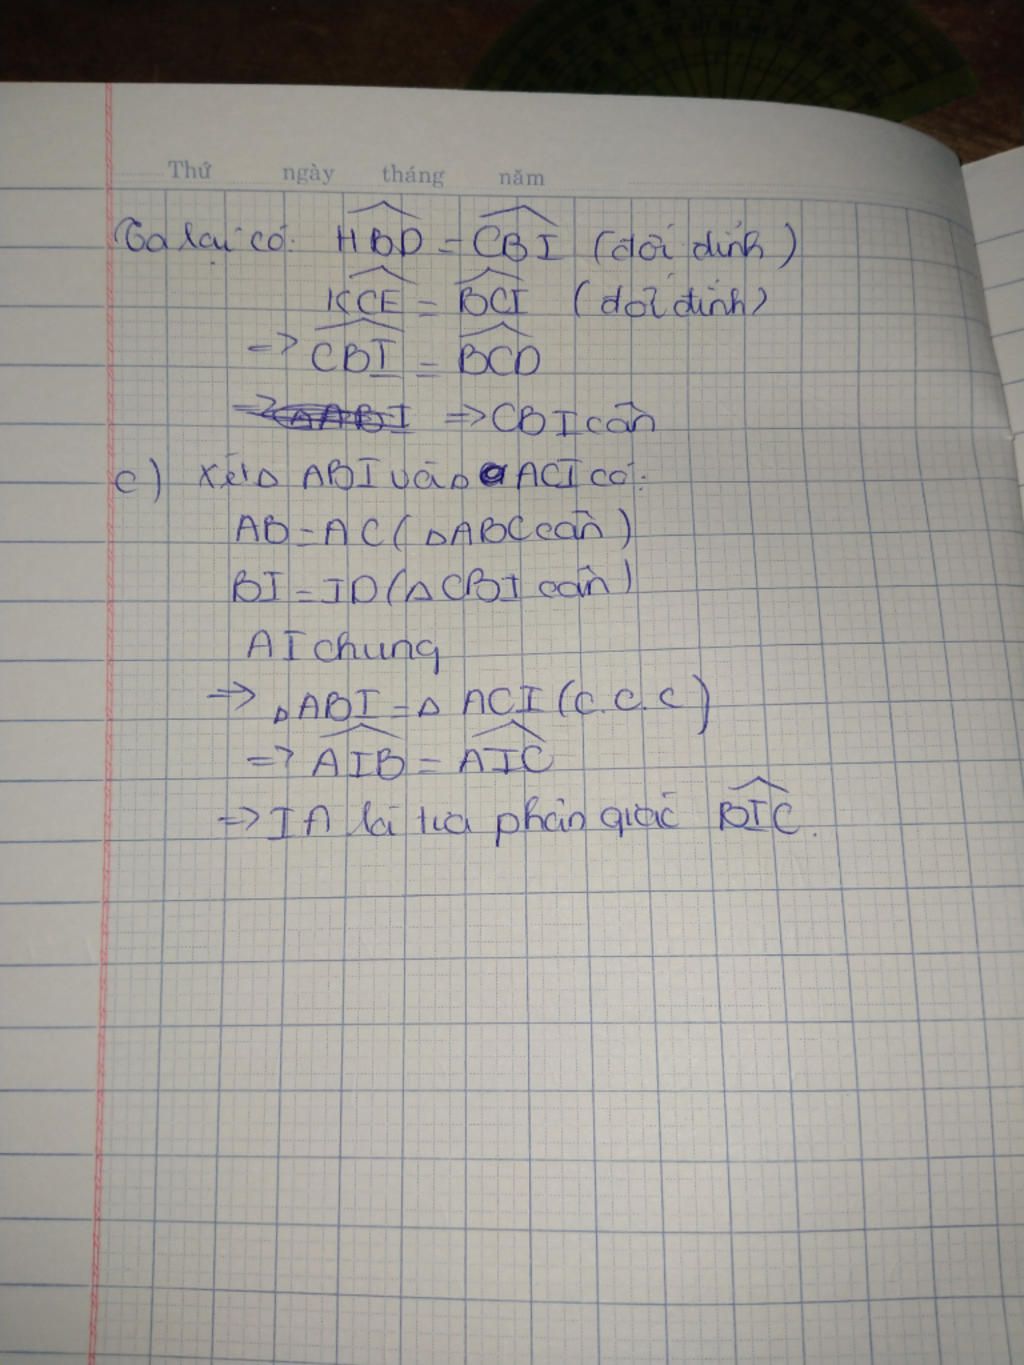 Thứ ngày tháng năm
Ta lại có: HBD = CBI (đối đỉnh)
KCE = BCI (đối đỉnh)
=> CBI = BCD
=> ΔABI => CBI cân
c) Xét Δ ABI và Δ ACI có:
AB = AC (Δ ABC cân)
BI = ID (Δ CBI cân)
AI chung
=> Δ ABI = Δ ACI (c.c.c)
=> AIB = AIC
=> IA là tia phân giác BIC.